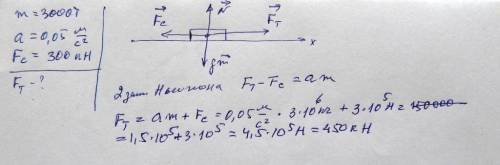 m = 3000т
a = 0,05 м/с²
Fc = 300 кН
Fт - ?
Fc
N
Fт
x
gm
2 закон Ньютона Fт - Fc = am
Fт = am + Fc = 0,05 м/с² · 3·10⁶ кг + 3·10⁵ Н =
= 1,5·10⁵ + 3·10⁵ = 4,5·10⁵ Н = 450 кН